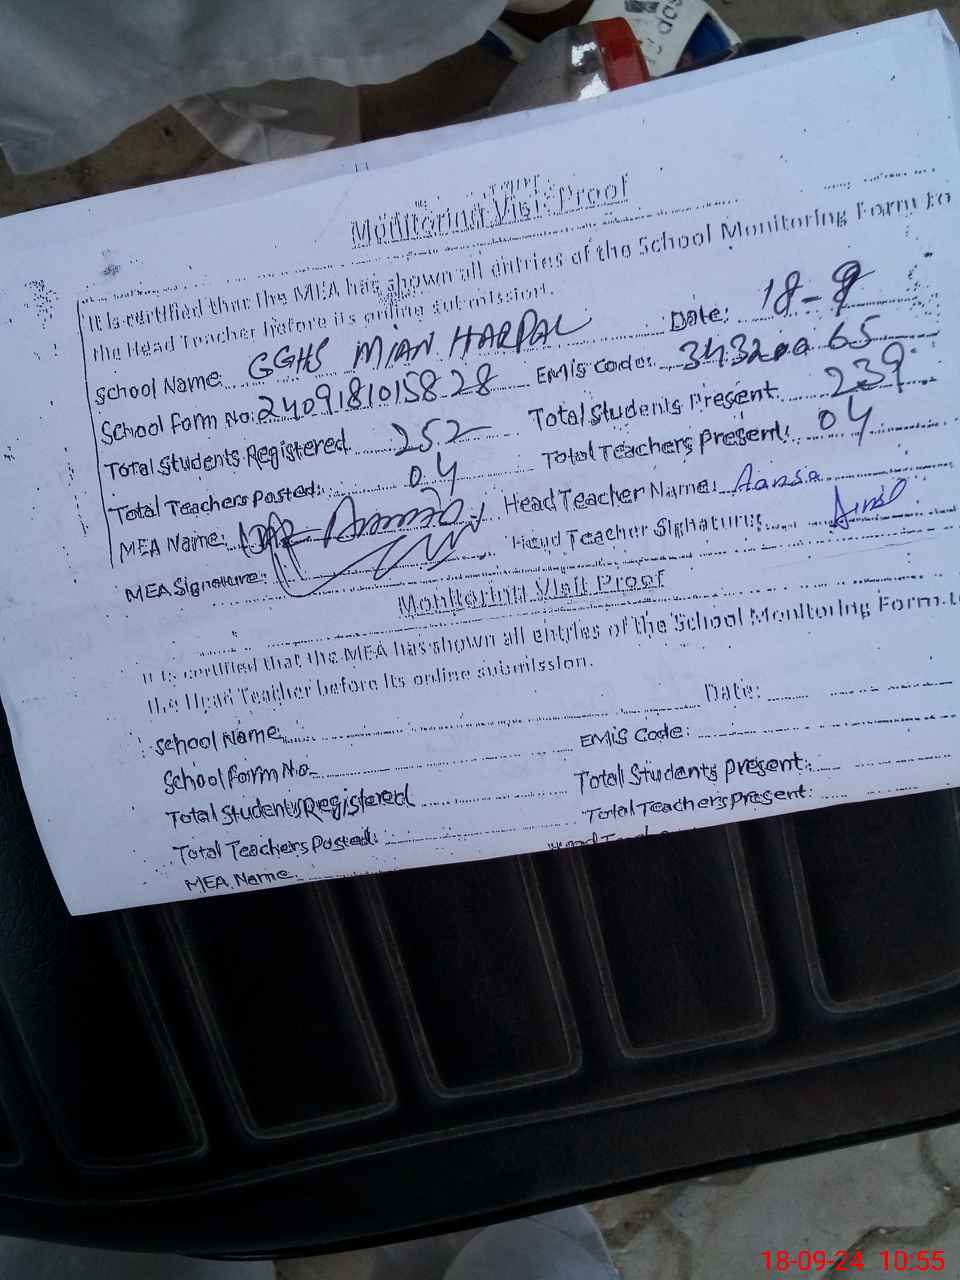 Monitoring Visit Proof
It is certified that the MEA has shown all entries of the School Monitoring Form to
the Head Teacher before its online submission.
School Name: GGHS MIAN HARPAL Date: 18-9
School Form No: 24091810158 28 EMIS Code: 343200 65
Total Students Registered 252 Total Students Present 239
Total Teachers Posted: 04 Total Teachers Present: 04
MEA Name: Head Teacher Name: Aansa
MEA Signature: Head Teacher Signature:
Monitoring Visit Proof
It is certified that the MEA has shown all entries of the School Monitoring Form to
the Head Teacher before its online submission.
School Name Date:
School Form No EMIS Code:
Total Students Registered Total Students Present:
Total Teachers Posted: Total Teachers Present:
MEA Name:
18-09-24 10:55